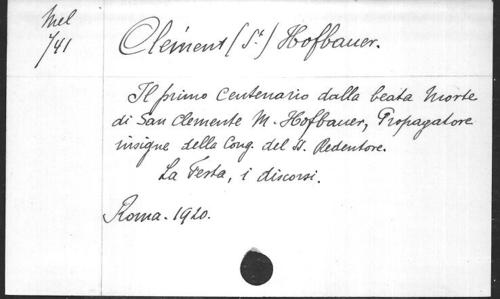 Mel
741
Clément (St.) Hofbauer.
Il primo Centenario dalla beata Morte
di San Clemente M. Hofbauer, Propagatore
insigne della Cong. del SS. Redentore.
La Festa, i discorsi.
Roma. 1920.